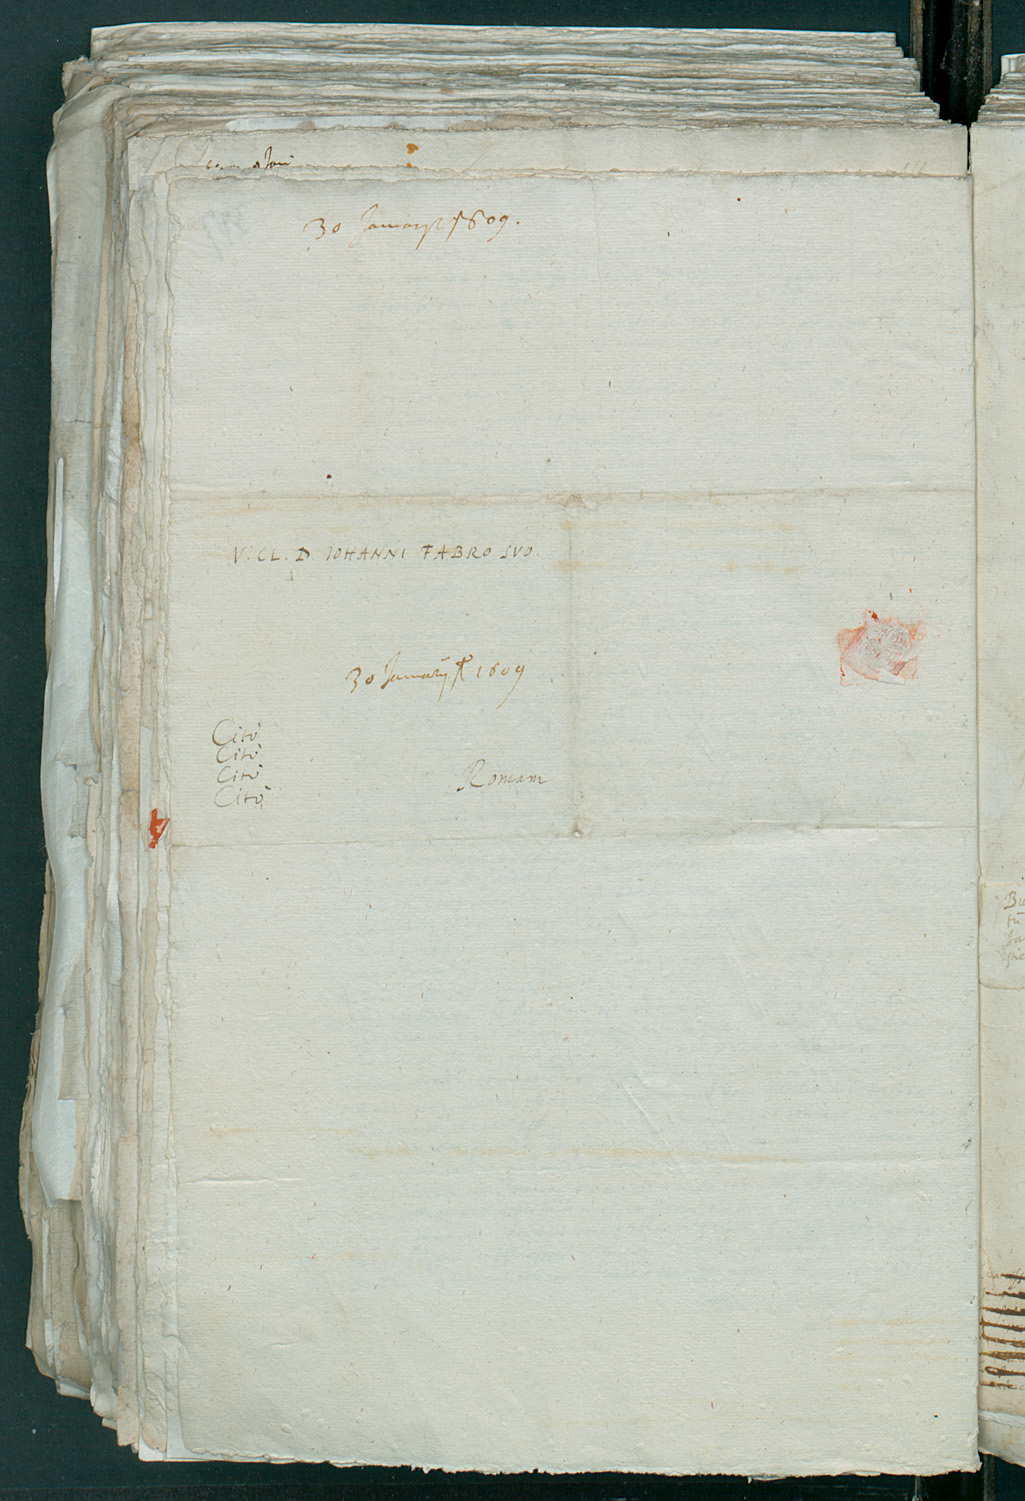 30 Januarij 1609.
V. CL. D IOHANNI FABRO SVO.
30 Januarij 1609
Citò
Citò
Citò
Citò
Romam